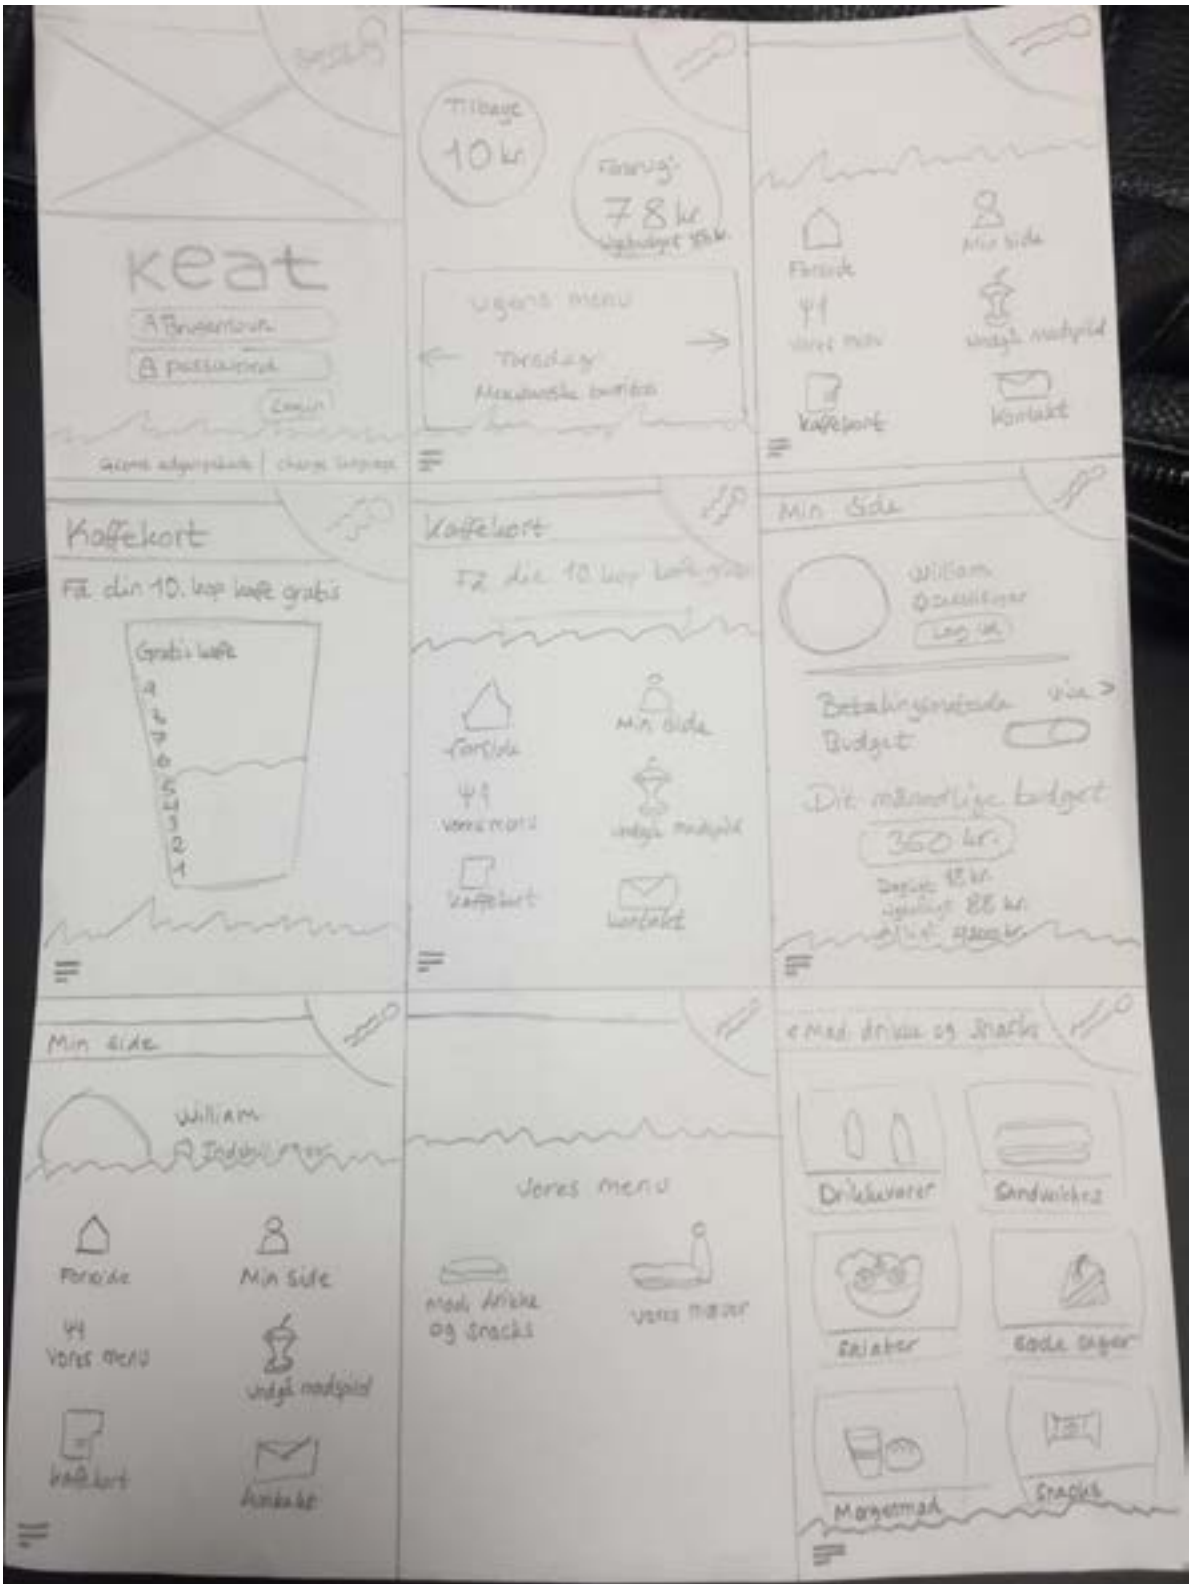 keat
Brugernavn
password
Login
Glemt adgangskode | change language
Tilbage
10 kr.
Forbrug:
78 kr
Ugebudget 88 kr.
ugens menu
Torsdag:
Mexicanske burritos
Forside
Min side
Vores menu
Undgå madspild
kaffekort
Kontakt
Kaffekort
Få din 10. kop kaffe gratis
Gratis kaffe
9
8
7
6
5
4
3
2
1
Kaffekort
Få din 10. kop kaffe gratis
Forside
Min side
Vores menu
undgå madspild
kaffekort
kontakt
Min side
William
Log ud
Betalingsmetode
Budget
Dit månedlige budget
350 kr.
88 kr.
Min side
William
Indstillinger
Forside
Min side
Vores menu
undgå madspild
kaffekort
Kontakt
Vores menu
Mad, drikke
og snacks
Vores
< Mad, drikke og snacks
Drikkevarer
Sandwiches
Salater
Søde sager
Morgenmad
Snacks